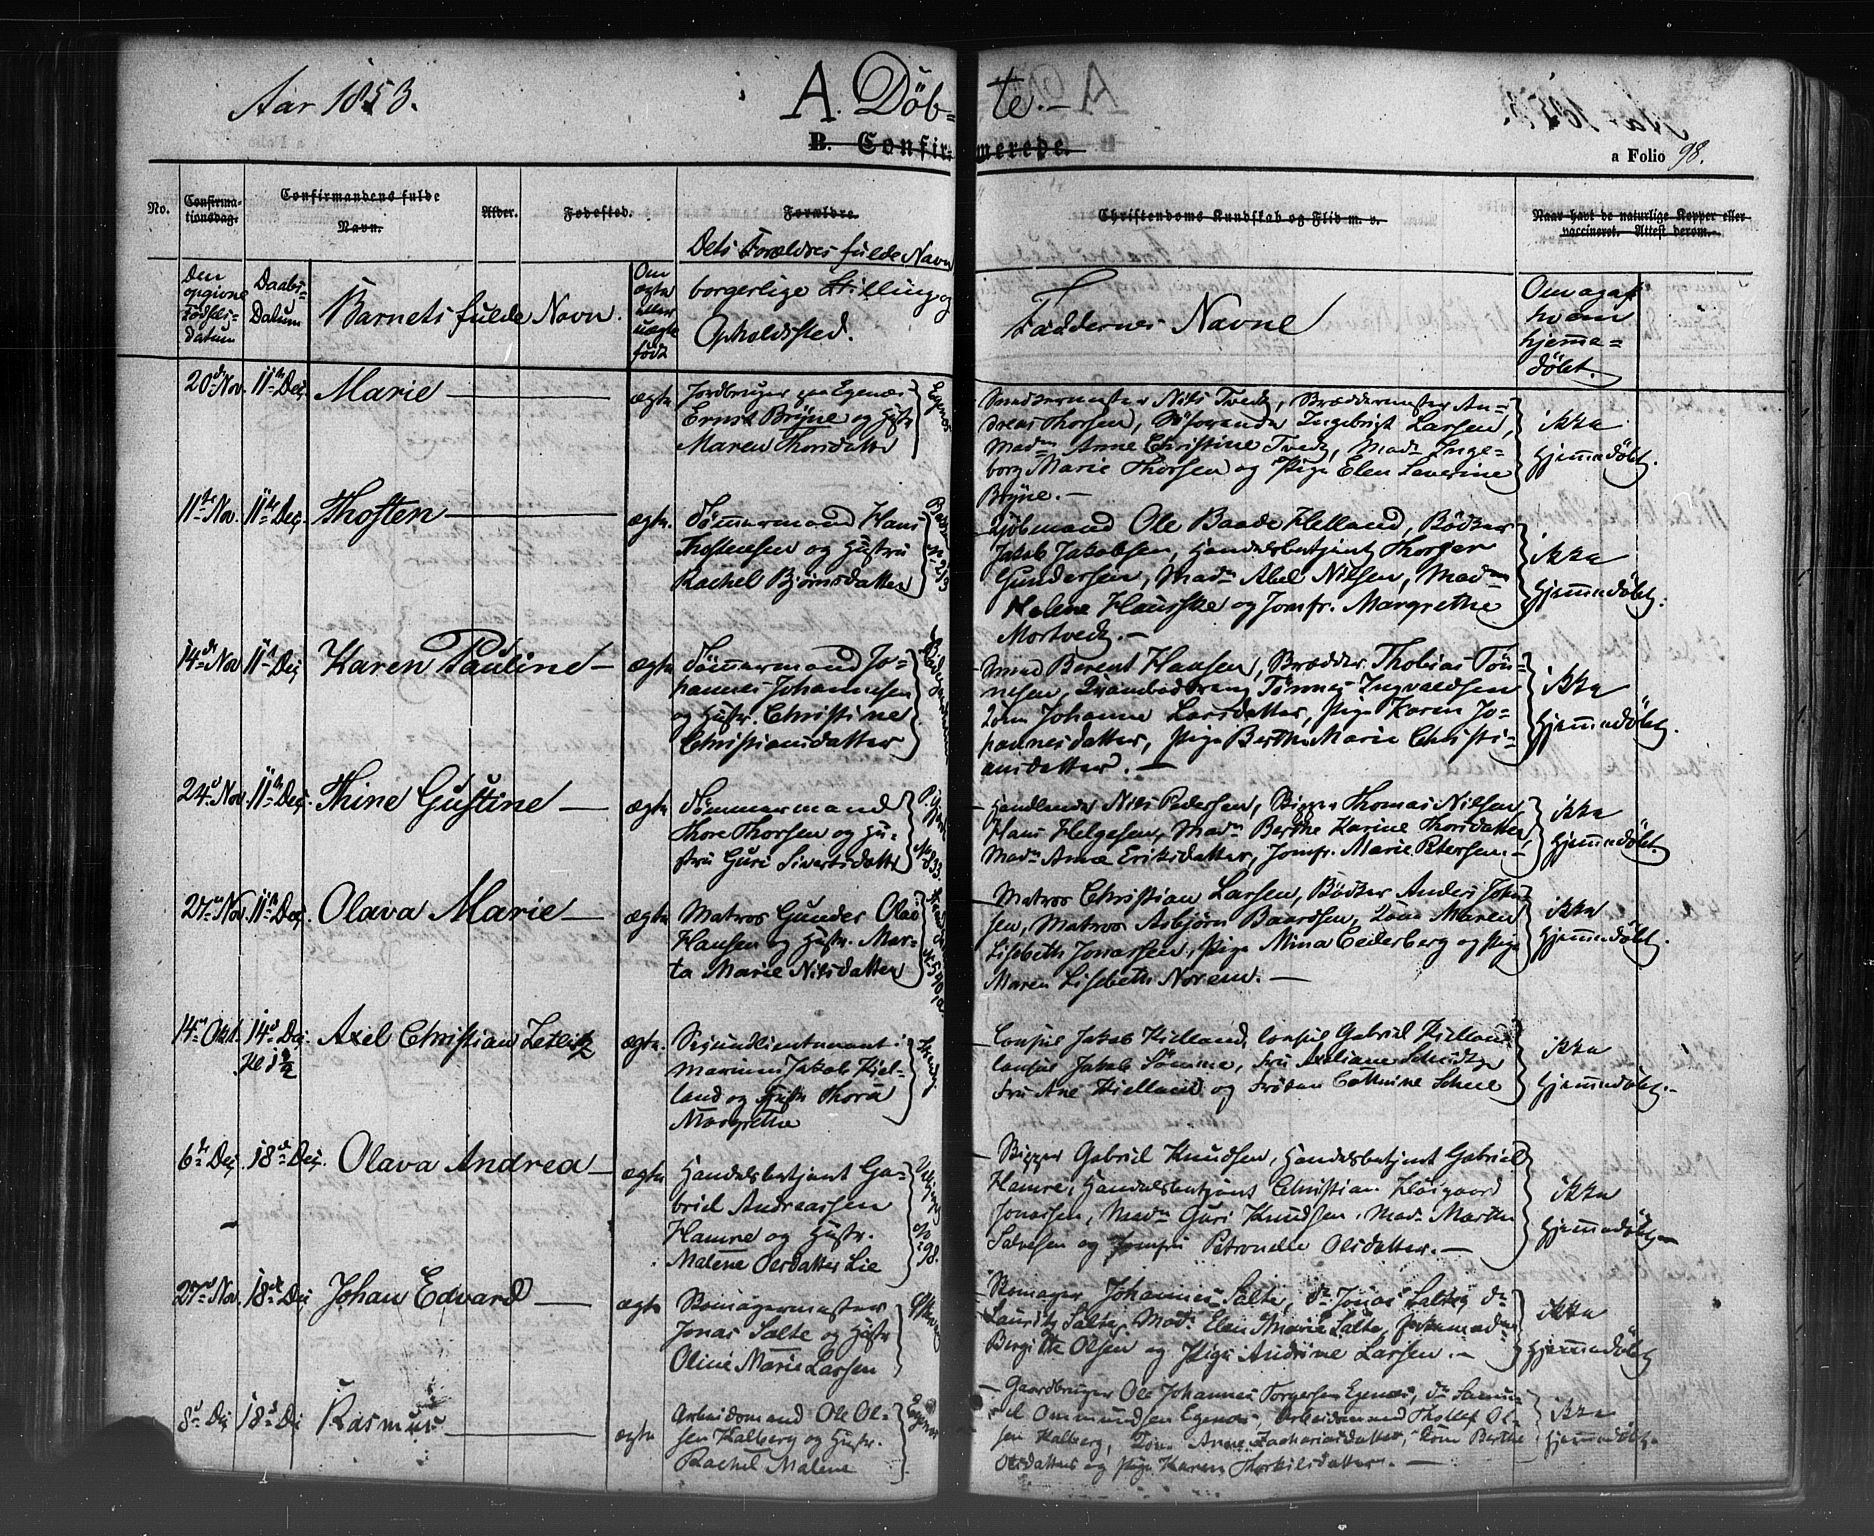 Aar 1853.
A. Döb-te.-
B. Confirmerede.
a Folio 98.
No.
Confirmationsdag.
Confirmandens fulde Navn.
Alder.
Fødested.
Forældre.
Christendoms Kundskab og Flid m. v.
Naar havt de naturlige Kopper eller vaccineret. Attest derom.
Den opgivne Födsels-datum
Daabs-Datum
Barnets fulde Navn.
Om ægte eller uægte födt
Dets Forældres fulde Navn
borgerlige Stilling og
Opholdssted.
Faddernes Navne
Om og af hvem hjemme-döbt.
20de Nov. 11te Dec. Marie
ægte
Jordbruger paa Egenæs
Ernst Bryne og Hustr.
Maren Thorsdatter
Egenæs
Snedkermester Nils Tvedt, Bræddermester An-
dreas Thorsen, Söfarende Ingebrigt Larsen,
Madm Anne Christine Tvedt, Madm Inge-
borg Marie Thorsen og Pige Elen Severine
Bryne.-
ikke
hjemmedöbt.
11te Nov. 11te Dec. Thosten
ægte.
Tömmermand Hans
Thostensen og Hustru
Rachel Bjørnsdatter
Kjöbmand Ole Baade Helland, Bödker
Jakob Jakobsen, Handelsbetjent Thorger
Gundersen, Madm Abel Nilsen, Madm
Helene Hauske og Jomfr. Margrethe
Mortvedt.-
ikke
hjemmedöbt.
14de Nov 11te Dec Karen Pauline
ægte
Tömmermand Jo-
hannes Johannesen
og Hustr. Christine
Christiansdatter
Smed Berent Hansen, Brædder Thobias Tön-
nesen, Tönnes Ingvaldsen
Kone Johanne Larsdatter, Pige Karen Jo-
hannesdatter, Pige Berthe Marie Christi-
ansdatter.-
ikke
hjemmedöbt.
24de Nov 11te Dec. Thine Gustine
ægte
Tömmermand
Thore Thorsen og Hu-
stru Guri Sivertsdatter
Handlende Nils Pedersen, Bygger Thomas Nilsen
Hans Helgesen, Madm Berthe Karine Thorsdatter
Madm Anne Eriksdatter, Jomfr. Marie Petersen.-
ikke
hjemmedöbt.
27de Nov. 11te Dec. Olava Marie
ægte
Matros Gunder Olai
Hansen og Hustr. Mar-
ta Marie Nilsdatter
Matros Christian Larsen, Bödker Anders John-
sen, Matros Asbjörn Baardsen, Kone Maren
Lisebeth Jonassen, Pige Mina Cederberg og Pige
Maren Lisebeth Norem.-
ikke
hjemmedöbt.
14de Okt. 14de Dec. Axel Christian Zetlitz
Kl 1 1/2
ægte.
Secundlieutenant i
marinen Jakob Kiel-
land og Hustr Thora
Margrethe
Consul Jakob Kielland, Consul Gabriel Kielland
Consul Jakob Sömme, Fru Axeliane Schmidt
Fru Ane Kielland og Fröken Cathrine Scheel
ikke
hjemmedöbt.-
6te Dec. 18de Dec. Olava Andrea
ægte
Handelsbetjent Ga-
briel Andreassen
Hamre og Hustr.
Malene Olesdatter Lie
Bygger Gabriel Knudsen, Handelsbetjent Gabriel
Hamre, Handelsbetjent Christian Höigaard
Jonassen, Madm Guri Knudsen, Madm Marthe
Salvesen og Jomfru Petronelle Olsdatter.-
ikke
hjemmedöbt.-
27de Nov. 18de Dec Johan Edvard
ægte
Skomagermester
Jonas Salte og Hustr
Oline Marie Larsen
Skomager Johannes Salte, do Jonas Salte, do
Lauritz Salte, Madm Elen Marie Salte, Jordemoder
Birgitte Olsen og Pige Andrine Larsen.-
ikke
hjemmedöbt
8de Dec 18de Dec Rasmus
ægte
Arbeidsmand Ole Ol-
sen Kalberg og Hustr.
Rachel Malene
Egenæs
Gaardbruger Ole Johannes Torgersen Egenæs, do Samu-
el Ommundsen Egenæs, Arbeidsmand Thollef Ol-
sen Kalberg, Kone Anne Zachariasdatter, Kone Berthe
Olsdatter og Pige Karen Thorkildsdatter.-
ikke
hjemmedöbt.